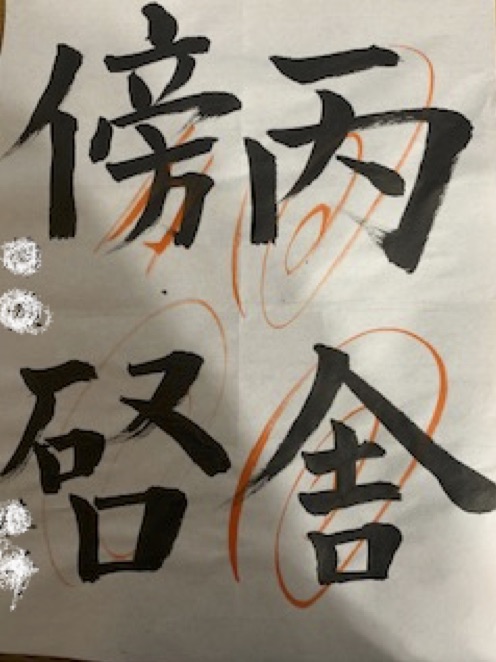 丙舎
傍啓